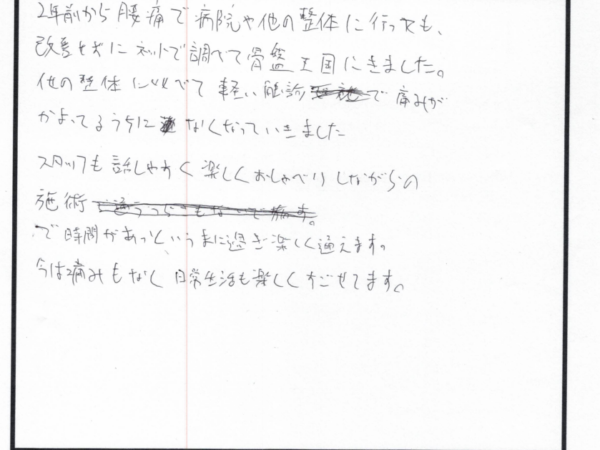 2年前から腰痛で病院や他の整体に行っても、
改善せずにネットで調べて骨盤王国にきました。
他の整体に比べて軽い問診で痛みが
かよってるうちになくなっていきました
スタッフも話しやすく楽しくおしゃべりしながらの
施術
で時間があっというまに過ぎ楽しく通えます。
今は痛みもなく日常生活も楽しくすごせてます。